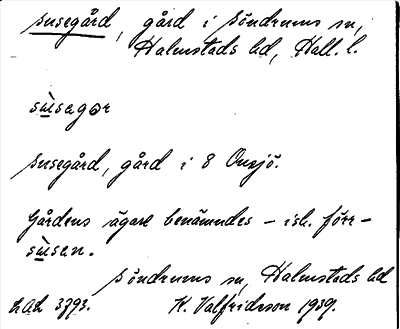 Susegård, gård i Söndrums sn,
Halmstads hd, Hall. l.
sùsagɔr
Susegård, gård i 8 Onsjö.
Gårdens ägare benämndes – isk. förr –
sùsen.
Söndrums sn, Halmstads hd
LAL 3793. K. Valfridsson 1939.